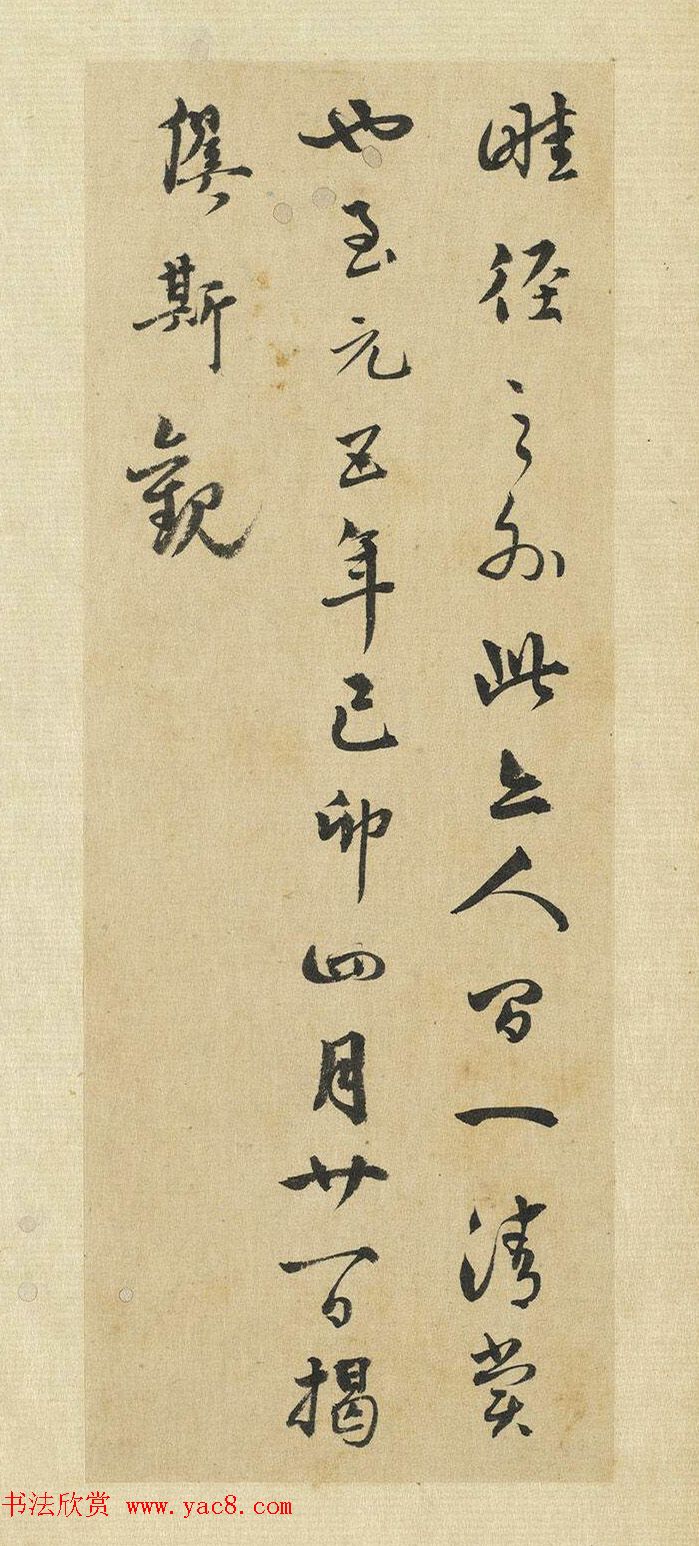 畦径之外此亦人間一清賞
也至元五年己卯四月廿一日揭
傒斯觀
书法欣赏 www.yac8.com